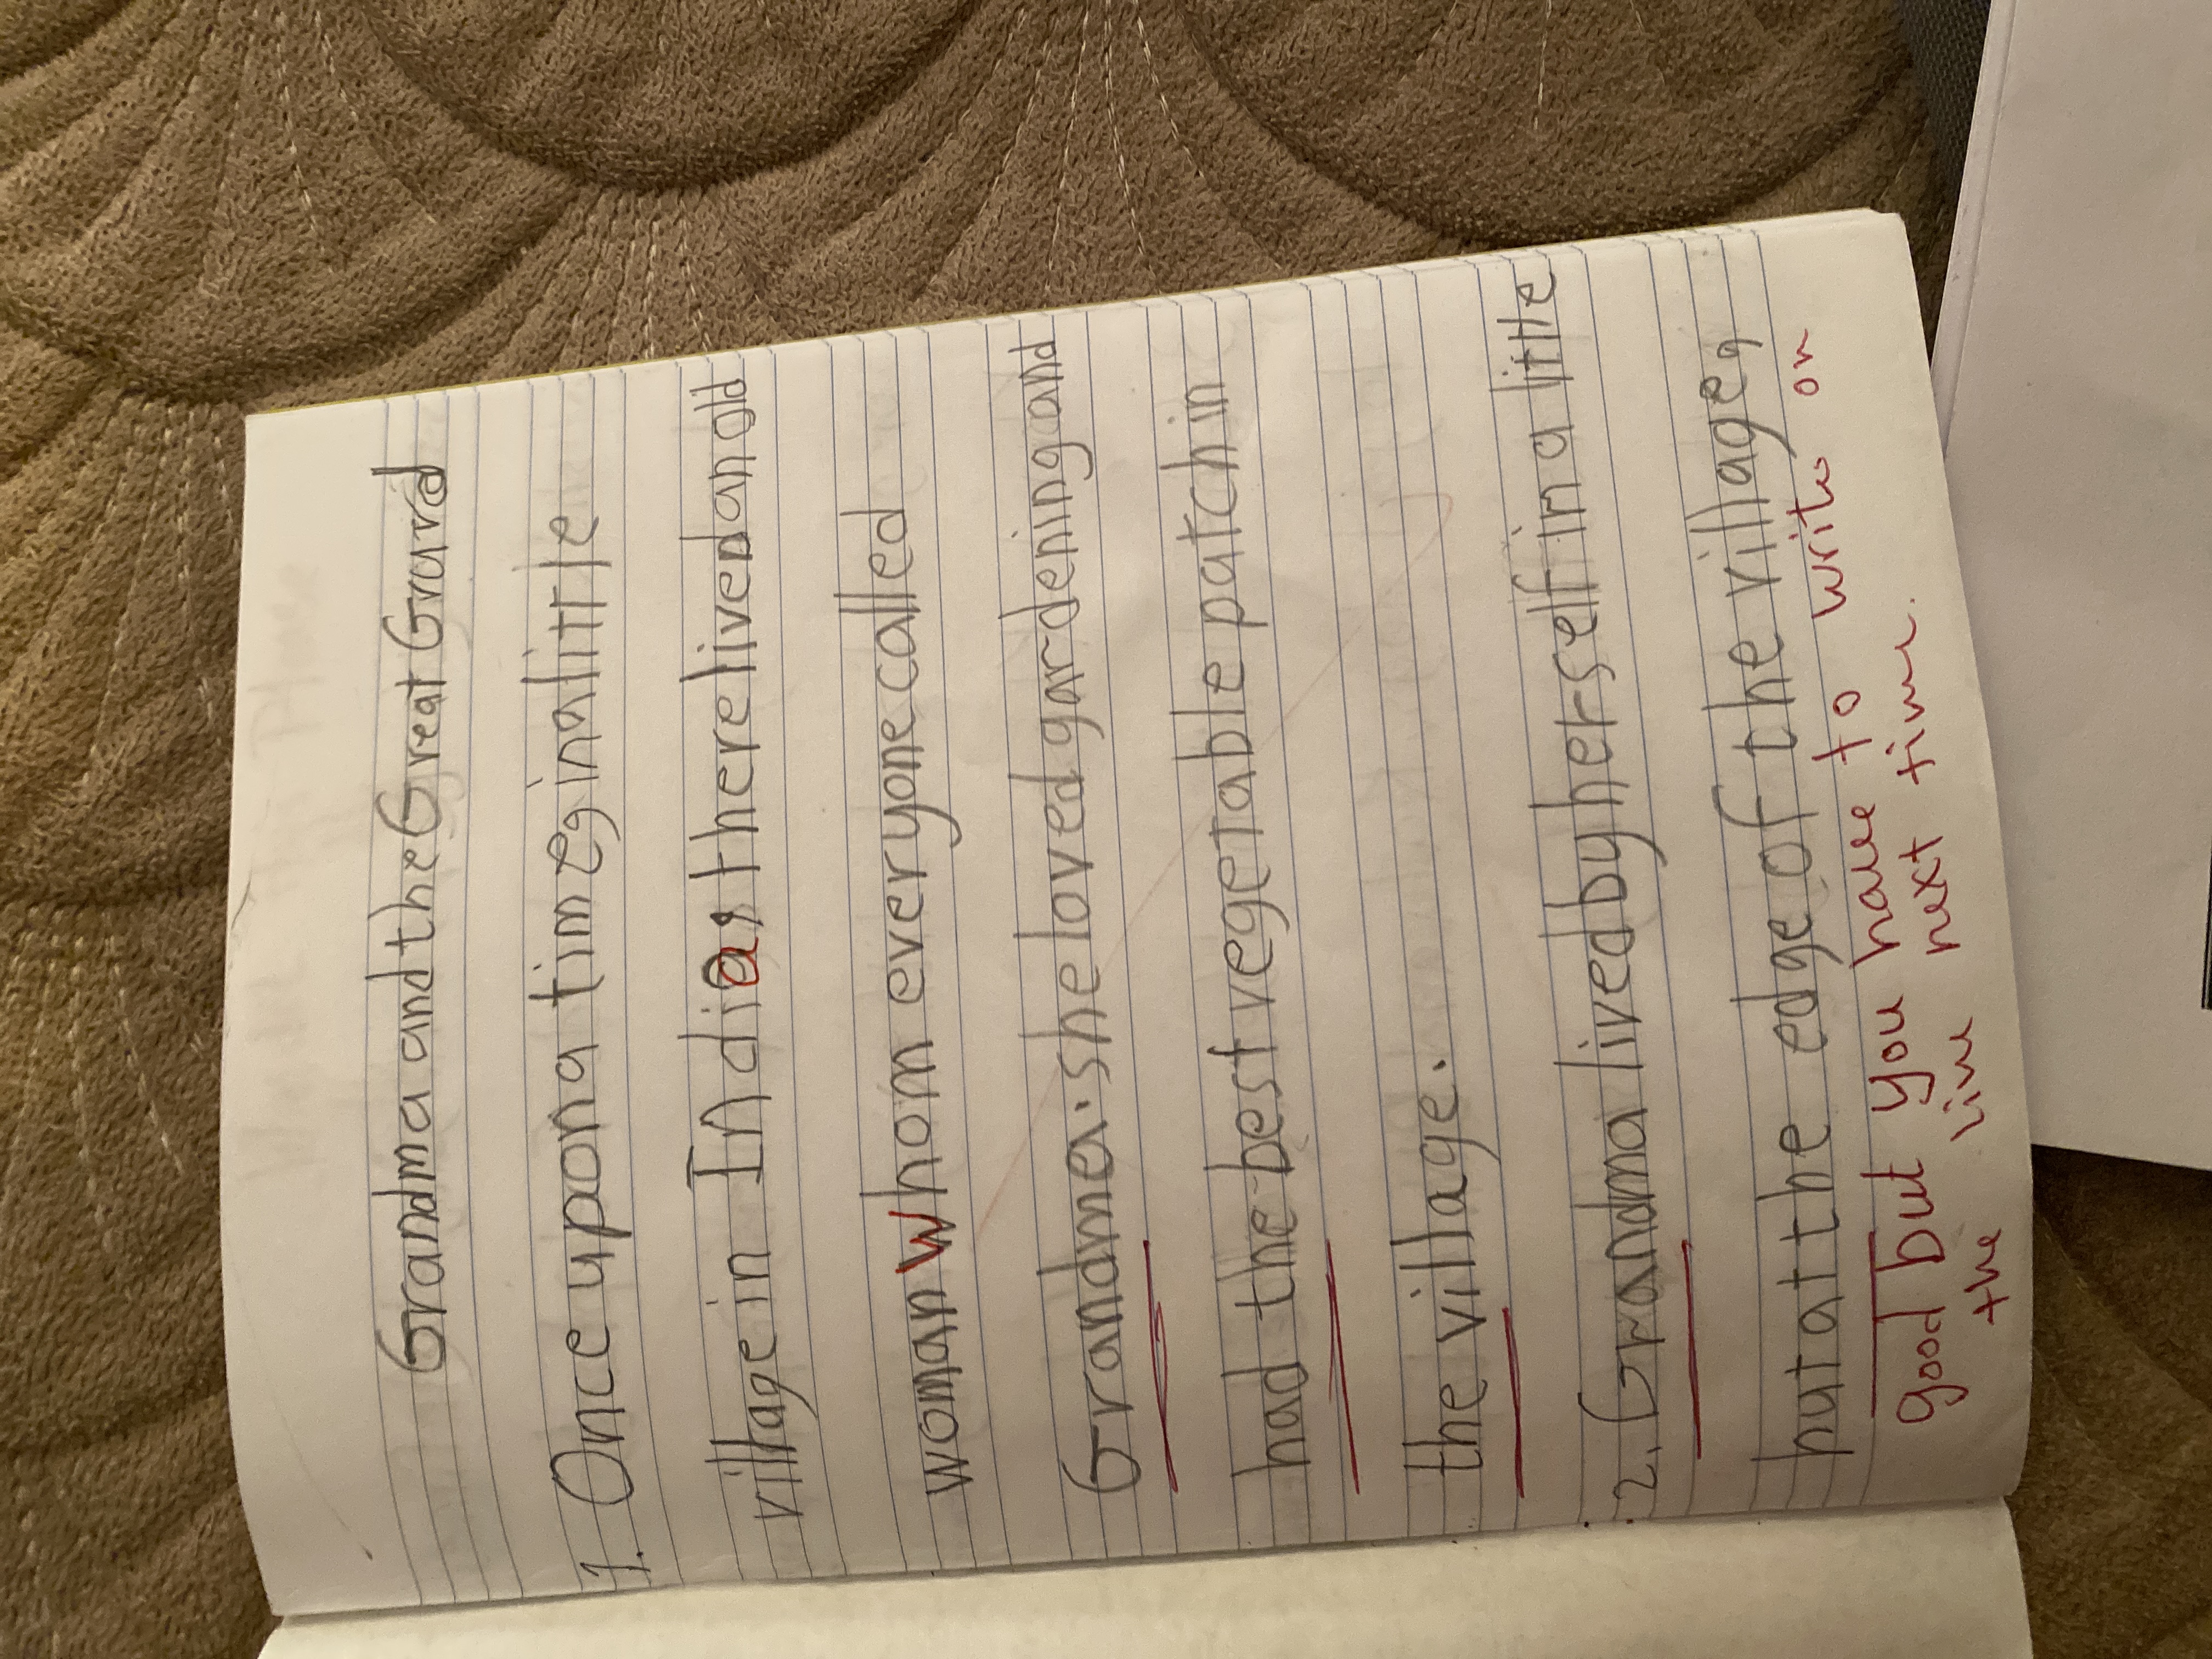 Grandma and the Great Gourd
1. Once upon a time, in a little
village in India, there lived an old
woman whom everyone called
Grandma. she loved gardening and
had the best vegetable patch in
the village.
2. Grandma lived by herself in a little
hut at the edge of the village,
good but you have to write on
the line next time.